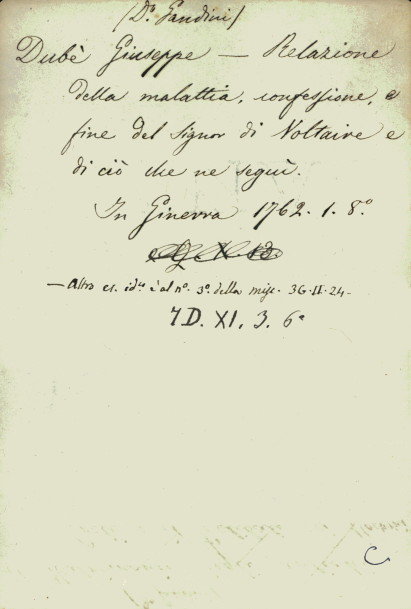 (Do. Gandini)
Dubè Giuseppe — Relazione
della malattia, confessione, e
fine del Signor di Voltaire e
di ciò che ne seguì.
In Ginevra 1762. 1. 8.o
— Altro es. id.o è al no. 3o. della misc. 3G.II.24-
7D. XI. 3. 6a
C